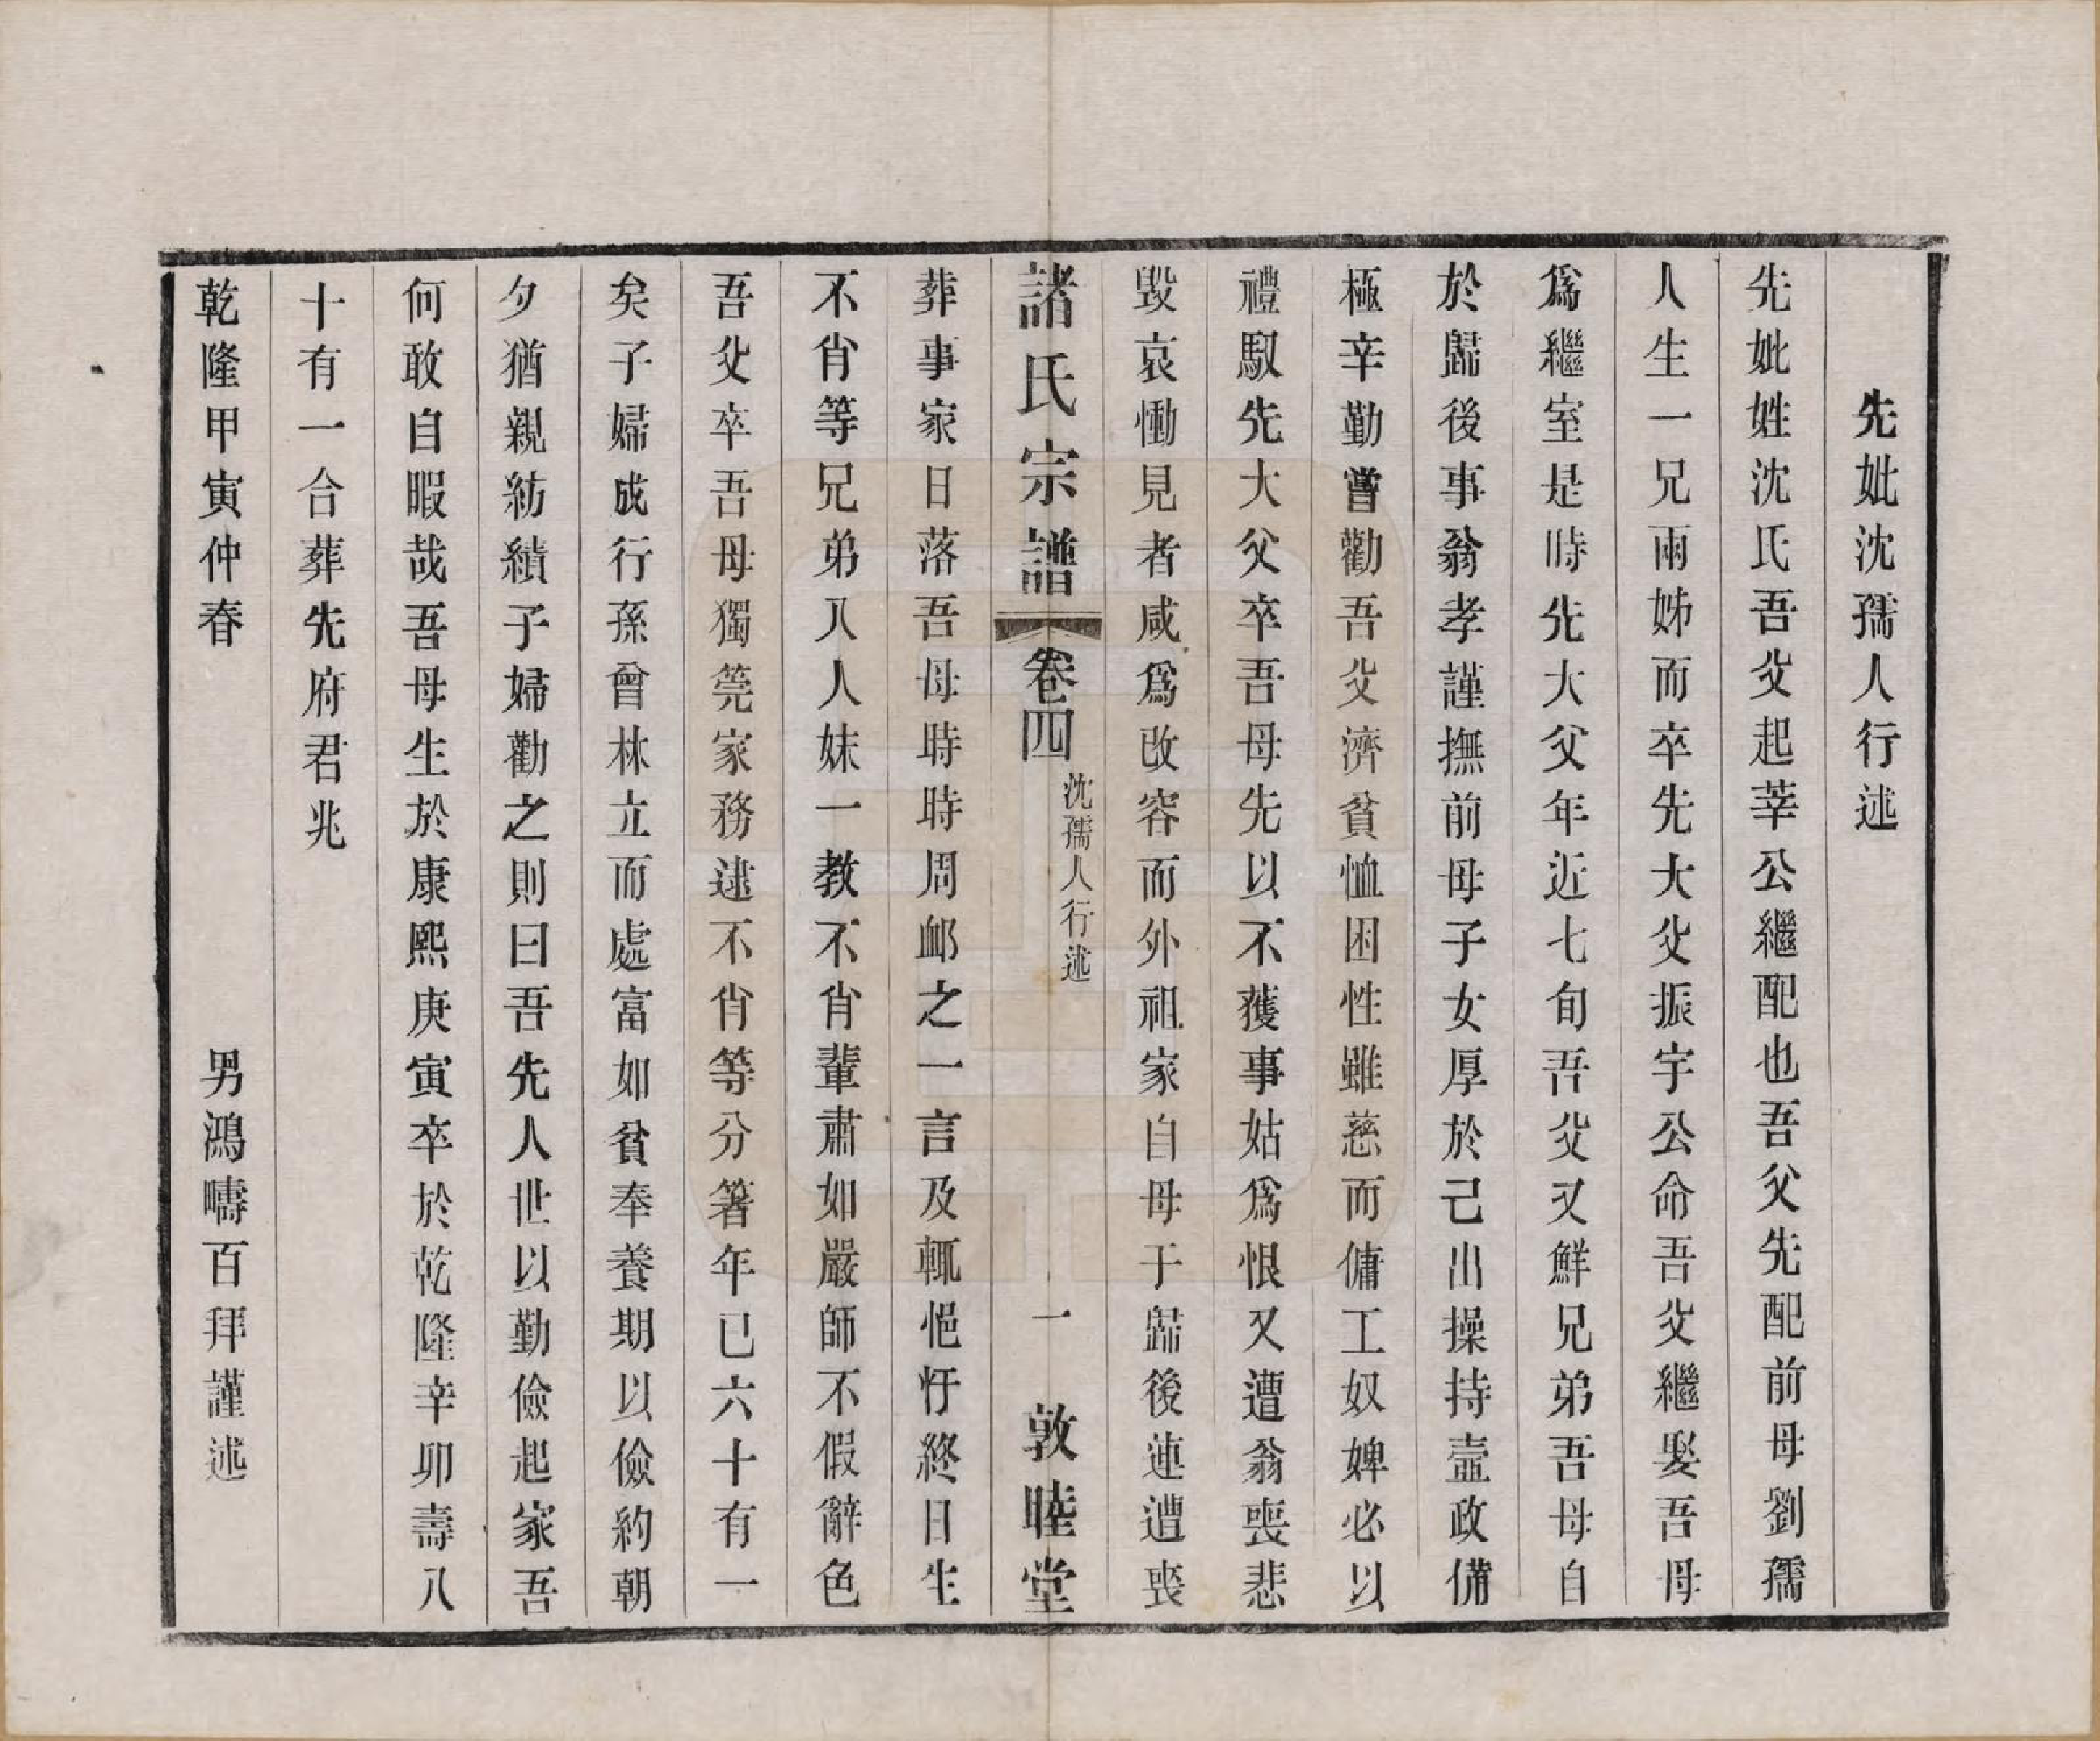 先妣沈孺人行述
先妣姓沈氏吾父起莘公繼配也吾父先配前母劉孺
人生一兄兩姊而卒先大父振宇公命吾父繼娶吾母
爲繼室是時先大父年近七旬吾父又鮮兄弟吾母自
於歸後事翁孝謹撫前母子女厚於己出操持壼政備
極辛勤嘗勸吾父濟貧恤困性雖慈而傭工奴婢必以
禮馭先大父卒吾母先以不獲事姑爲恨又遭翁喪悲
毀哀慟見者咸爲改容而外祖家自母于歸後連遭喪
諸氏宗譜 卷四 沈孺人行述 一 敦睦堂
葬事家日落吾母時時周䘏之一言及輒悒忬終日生
不肖等兄弟八人妹一教不肖輩肅如嚴師不假辭色
吾父卒吾母獨筦家務逮不肖等分箸年已六十有一
矣子婦成行孫曾林立而處富如貧奉養期以儉約朝
夕猶親紡績子婦勸之則曰吾先人世以勤儉起家吾
何敢自暇哉吾母生於康熙庚寅卒於乾隆辛卯壽八
十有一合葬先府君兆
乾隆甲寅仲春 男鴻疇百拜謹述